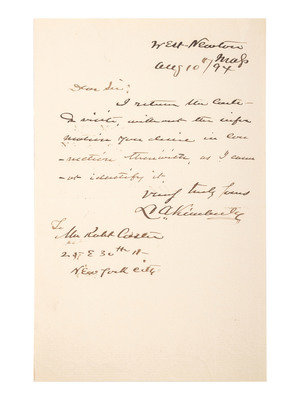 West Newton
Mass
Aug 10th/94
Dear Sir:
I return the Carte-
de visite, without the infor
mation you desire in con-
-nection therewith, as I cann
-ot identify it
Very truly yours
L A Kimberly
To
Mr Robt Coster
2 E 30th St
New York City